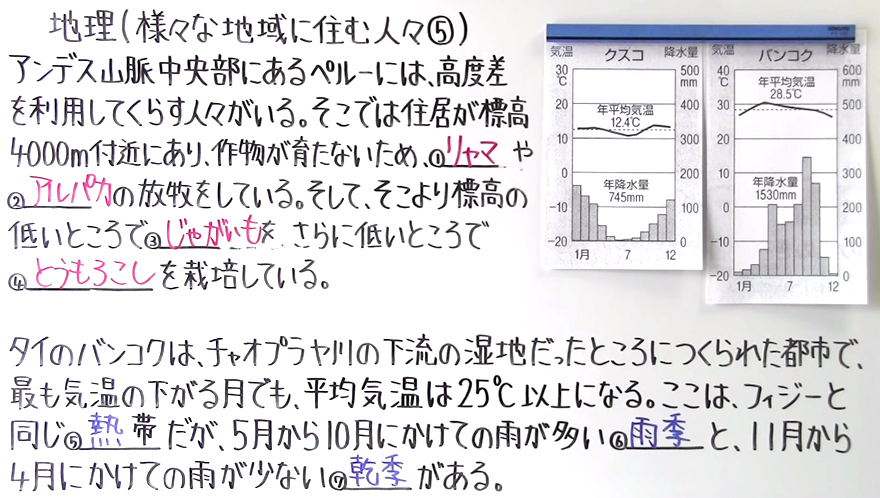 地理(様々な地域に住む人々⑤)
アンデス山脈中央部にあるペルーには、高度差
を利用してくらす人々がいる。そこでは住居が標高
4000m付近にあり、作物が育たないため、①リャマや
②アルパカの放牧をしている。そして、そこより標高の
低いところで③じゃがいもを、さらに低いところで
④とうもろこしを栽培している。
気温 クスコ 降水量
30 ℃ 500 mm
20 400
年平均気温
12.4℃
10 300
0 200
年降水量
745mm
-10 100
-20 0
1月 7 12
気温 バンコク 降水量
40 ℃ 600 mm
年平均気温
28.5℃
30 500
20 400
10 300
年降水量
1530mm
0 200
-10 100
-20 0
1月 7 12
タイのバンコクは、チャオプラヤ川の下流の湿地だったところにつくられた都市で、
最も気温の下がる月でも、平均気温は25℃以上になる。ここは、フィジーと
同じ⑤熱帯だが、5月から10月にかけての雨が多い⑥雨季と、11月から
4月にかけての雨が少ない⑦乾季がある。